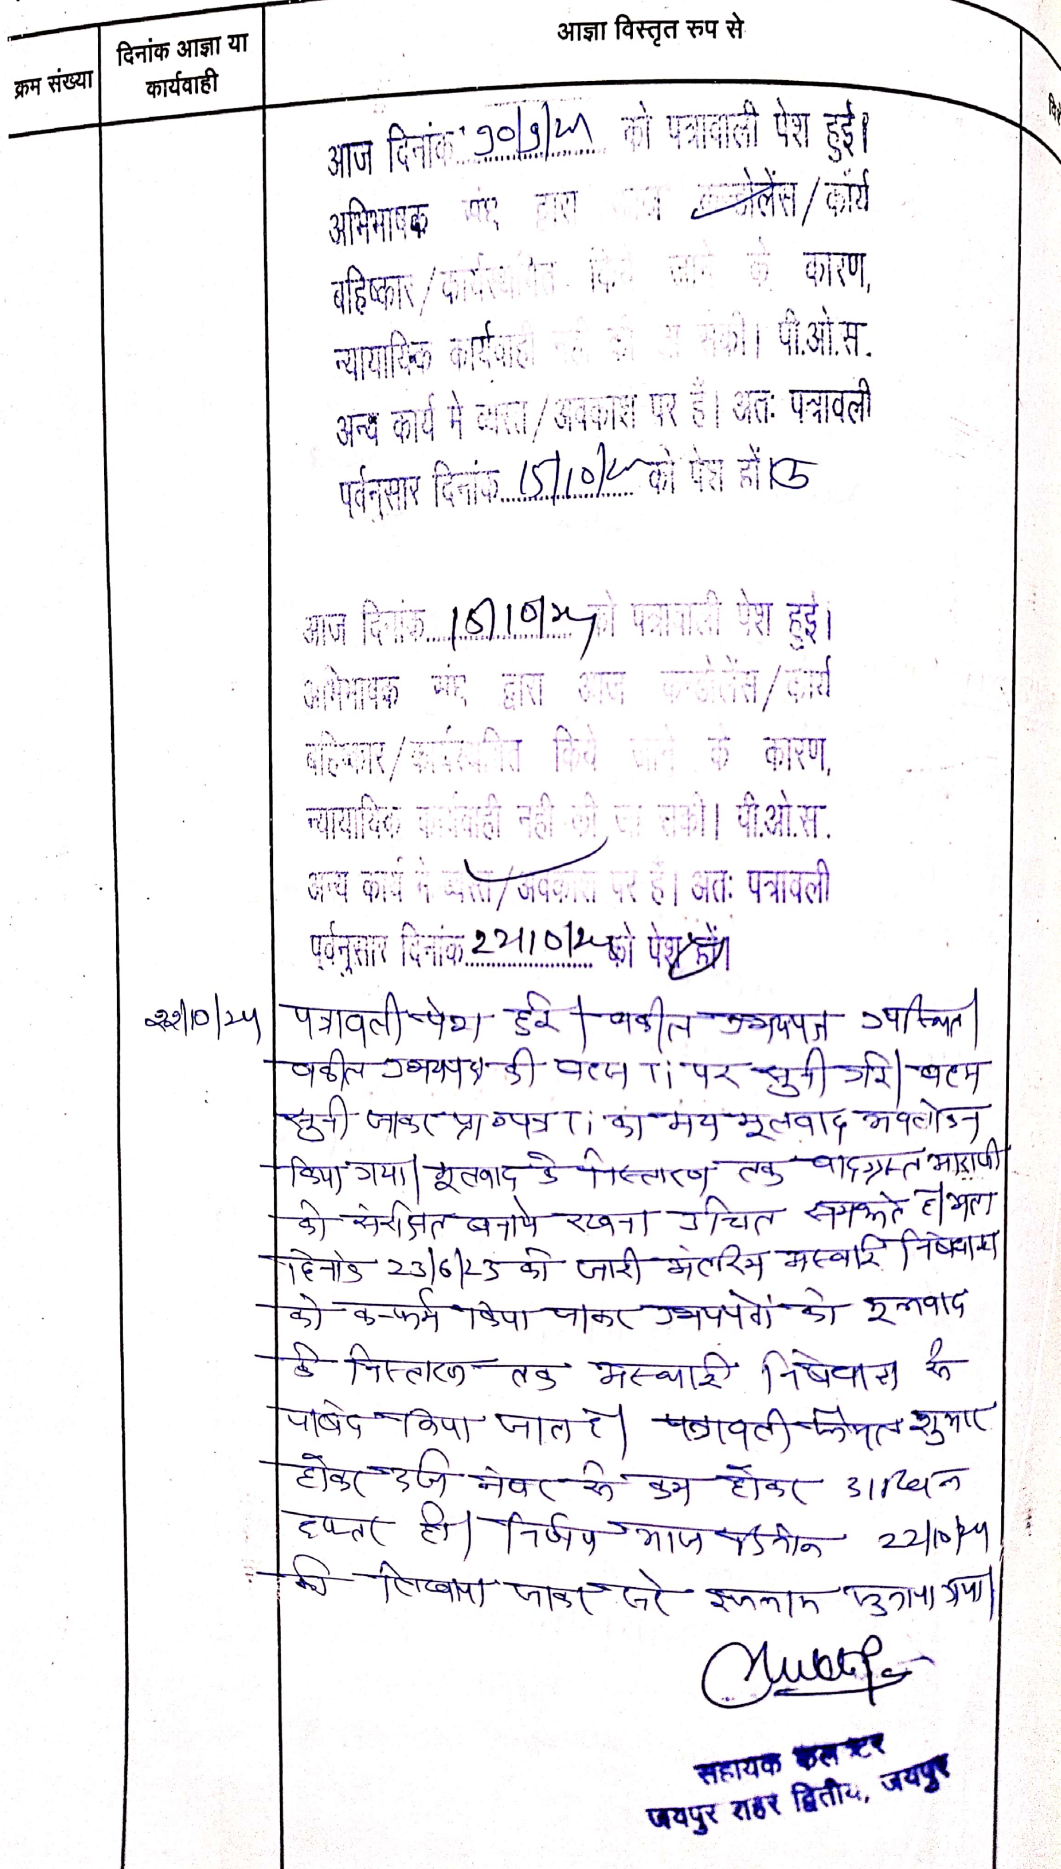 क्रम संख्या
दिनांक आज्ञा या
कार्यवाही
आज्ञा विस्तृत रुप से
आज दिनांक 30/9/24 को पत्रावाली पेश हुई।
अभिभाषक संघ द्वारा आज कन्डोलेंस/कार्य
बहिष्कार/कार्यस्थगित किये जाने के कारण,
न्यायायिक कार्यवाही नही की जा सकी। पी.ओ.स.
अन्य कार्य मे व्यस्त/अवकाश पर हैं। अतः पत्रावली
पर्वनुसार दिनांक 15/10/24 को पेश हों।
आज दिनांक 15/10/24 को पत्रावाली पेश हुई।
अभिभाषक संघ द्वारा आज कन्डोलेंस/कार्य
बहिष्कार/कार्यस्थगित किये जाने के कारण,
न्यायायिक कार्यवाही नही की जा सकी। पी.ओ.स.
अन्य कार्य मे व्यस्त/अवकाश पर हैं। अतः पत्रावली
पर्वनुसार दिनांक 22/10/24 को पेश हों।
22/10/24 पत्रावली पेश हुई। वकील उभयपक्ष उपस्थित।
वकील उभयपक्ष की बहस T.i पर सुनी गई। बहस
सुनी जाकर प्रा०पत्र T.i का मय मूलवाद अवलोकन
किया गया। मूलवाद के निस्तारण तक वादग्रस्त आराजी
को संरक्षित बनाये रखना उचित समझते है। अतः
दिनांक 23/6/23 को जारी अंतरिम अस्थाई निषेधाज्ञा
को कन्फर्म किया जाकर उभयपक्षों को मूलवाद
के निस्तारण तक अस्थाई निषेधाज्ञा से
पाबंद किया जाता है। पत्रावली फैसल शुमार
होकर दर्ज नंबर से कम होकर दाखिल
दफ्तर हो। निर्णय आज दिनांक 22/10/24
को लिखाया जाकर सरे इजलास सुनाया गया।
सहायक कलक्टर
जयपुर शहर द्वितीय, जयपुर